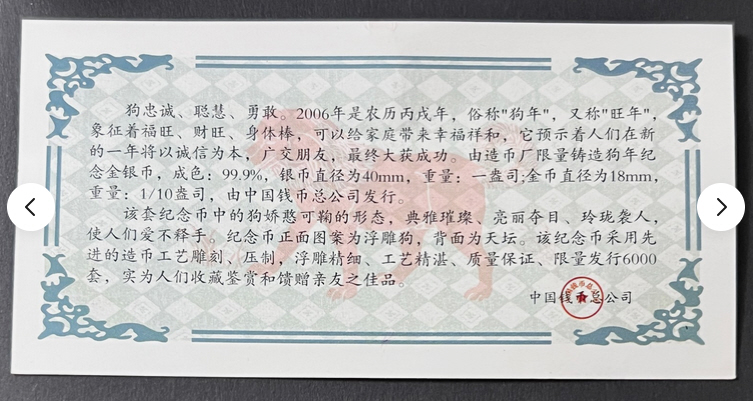 狗忠诚、聪慧、勇敢。2006年是农历丙戌年，俗称"狗年"，又称"旺年"，
象征着福旺、财旺、身体棒，可以给家庭带来幸福祥和，它预示着人们在新
的一年将以诚信为本，广交朋友，最终大获成功。由造币厂限量铸造狗年纪
念金银币，成色：99.9%，银币直径为40mm，重量：一盎司;金币直径为18mm，
重量：1/10盎司，由中国钱币总公司发行。
该套纪念币中的狗娇憨可鞠的形态，典雅璀璨、亮丽夺目、玲珑袭人，
使人们爱不释手。纪念币正面图案为浮雕狗，背面为天坛。该纪念币采用先
进的造币工艺雕刻、压制，浮雕精细、工艺精湛、质量保证、限量发行6000
套，实为人们收藏鉴赏和馈赠亲友之佳品。
中国钱币总公司